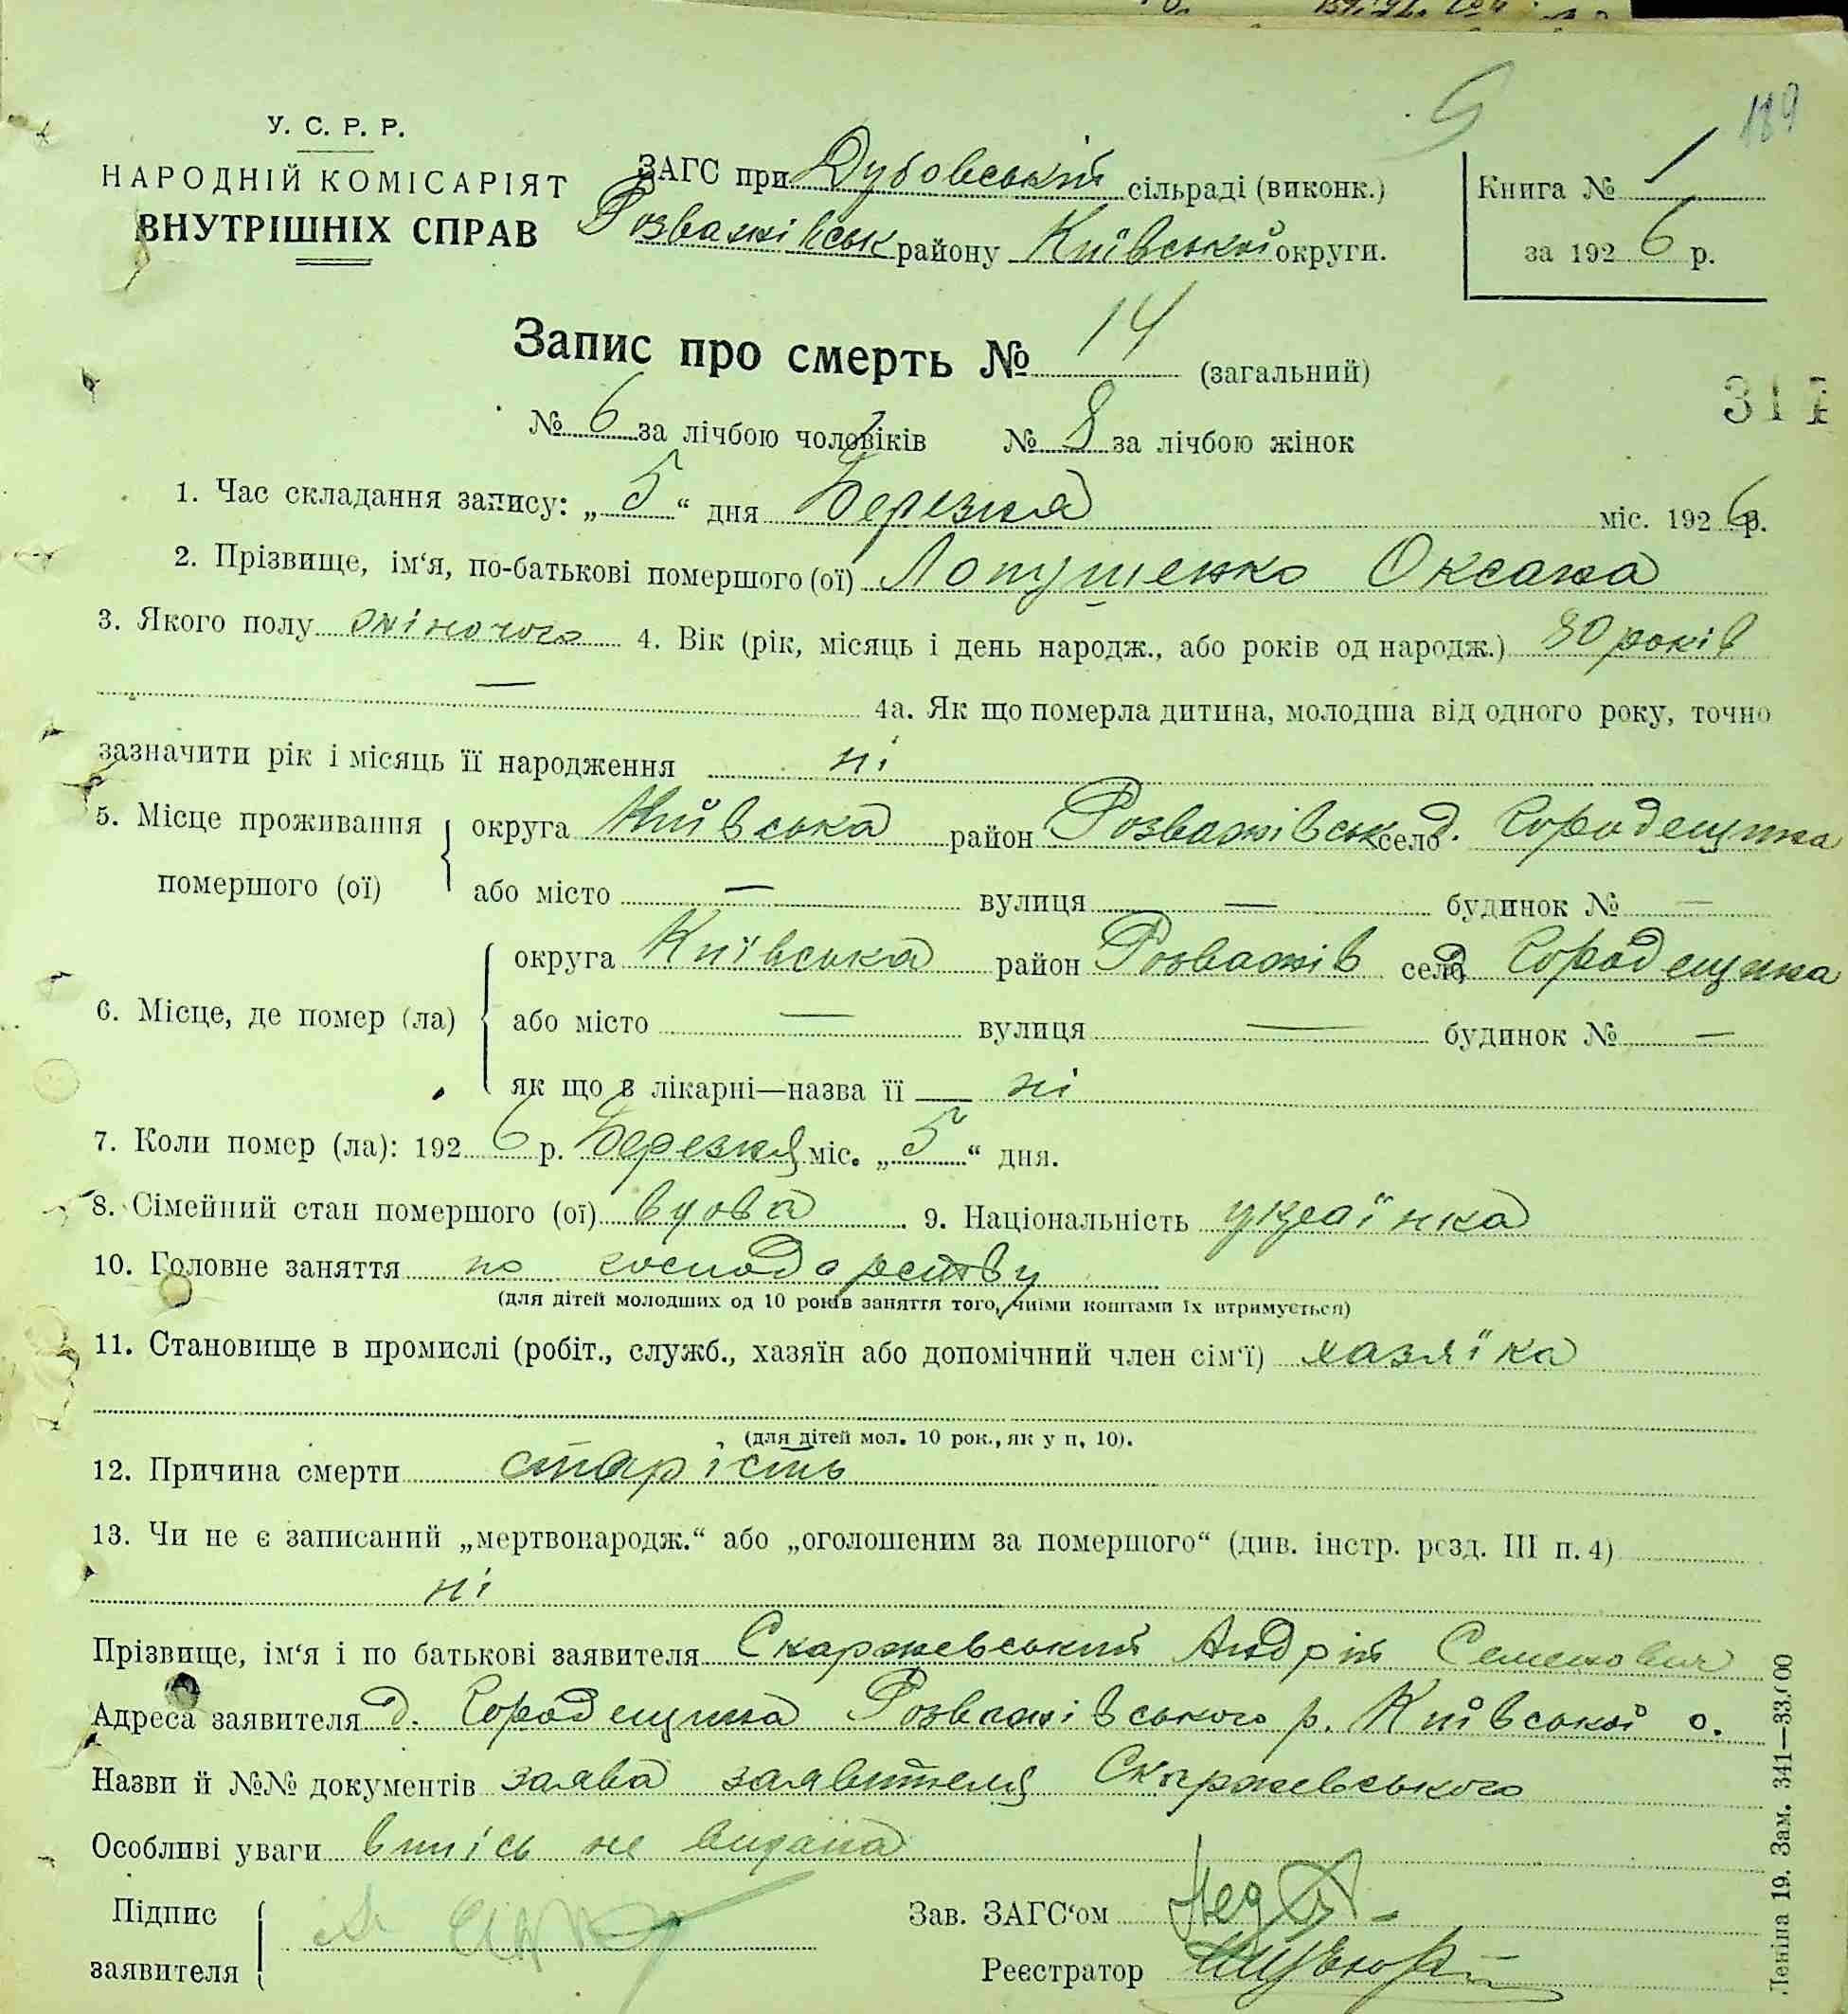 189
У. С. Р. Р.
НАРОДНІЙ КОМІСАРІЯТ
ВНУТРІШНІХ СПРАВ
ЗАГС при Дубовський сільраді (виконк.)
Розважівськ району Київської округи.
Книга № 1
за 1926 р.
Запис про смерть № 14 (загальний)
№ 6 за лічбою чоловіків № 8 за лічбою жінок
317
1. Час складання запису: „5“ дня Березня міс. 1926 р.
2. Прізвище, ім‘я, по-батькові помершого (ої) Лопушенко Оксана
3. Якого полу жіночого 4. Вік (рік, місяць і день народж., або років од народж.) 80 років
— 4а. Як що померла дитина, молодша від одного року, точно
зазначити рік і місяць її народження ні
5. Місце проживання помершого (ої) округа Київська район Розважівськ село д. Городещина
або місто — вулиця — будинок № —
6. Місце, де помер (ла) округа Київська район Розважів село д. Городещина
або місто — вулиця — будинок № —
як що в лікарні—назва її — ні
7. Коли помер (ла): 1926 р. Березня міс. „5“ дня.
8. Сімейний стан помершого (ої) вдова 9. Національність українка
10. Головне заняття по господарству
(для дітей молодших од 10 років заняття того, чиїми коштами їх втримується)
11. Становище в промислі (робіт., служб., хазяїн або допомічний член сім‘ї) хазяїка
(для дітей мол. 10 рок., як у п. 10).
12. Причина смерти старість
13. Чи не є записаний „мертвонародж.“ або „оголошеним за помершого“ (див. інстр. розд. III п. 4)
ні
Прізвище, ім‘я і по батькові заявителя Скаржевський Андрій Семенович
Адреса заявителя д. Городещина Розважівського р. Київської о.
Назви й №№ документів заява заявителя Скаржевського
Особливі уваги впись не видана
Підпис заявителя
Зав. ЗАГС‘ом
Реєстратор
Леніна 19. Зам. 341—33.000